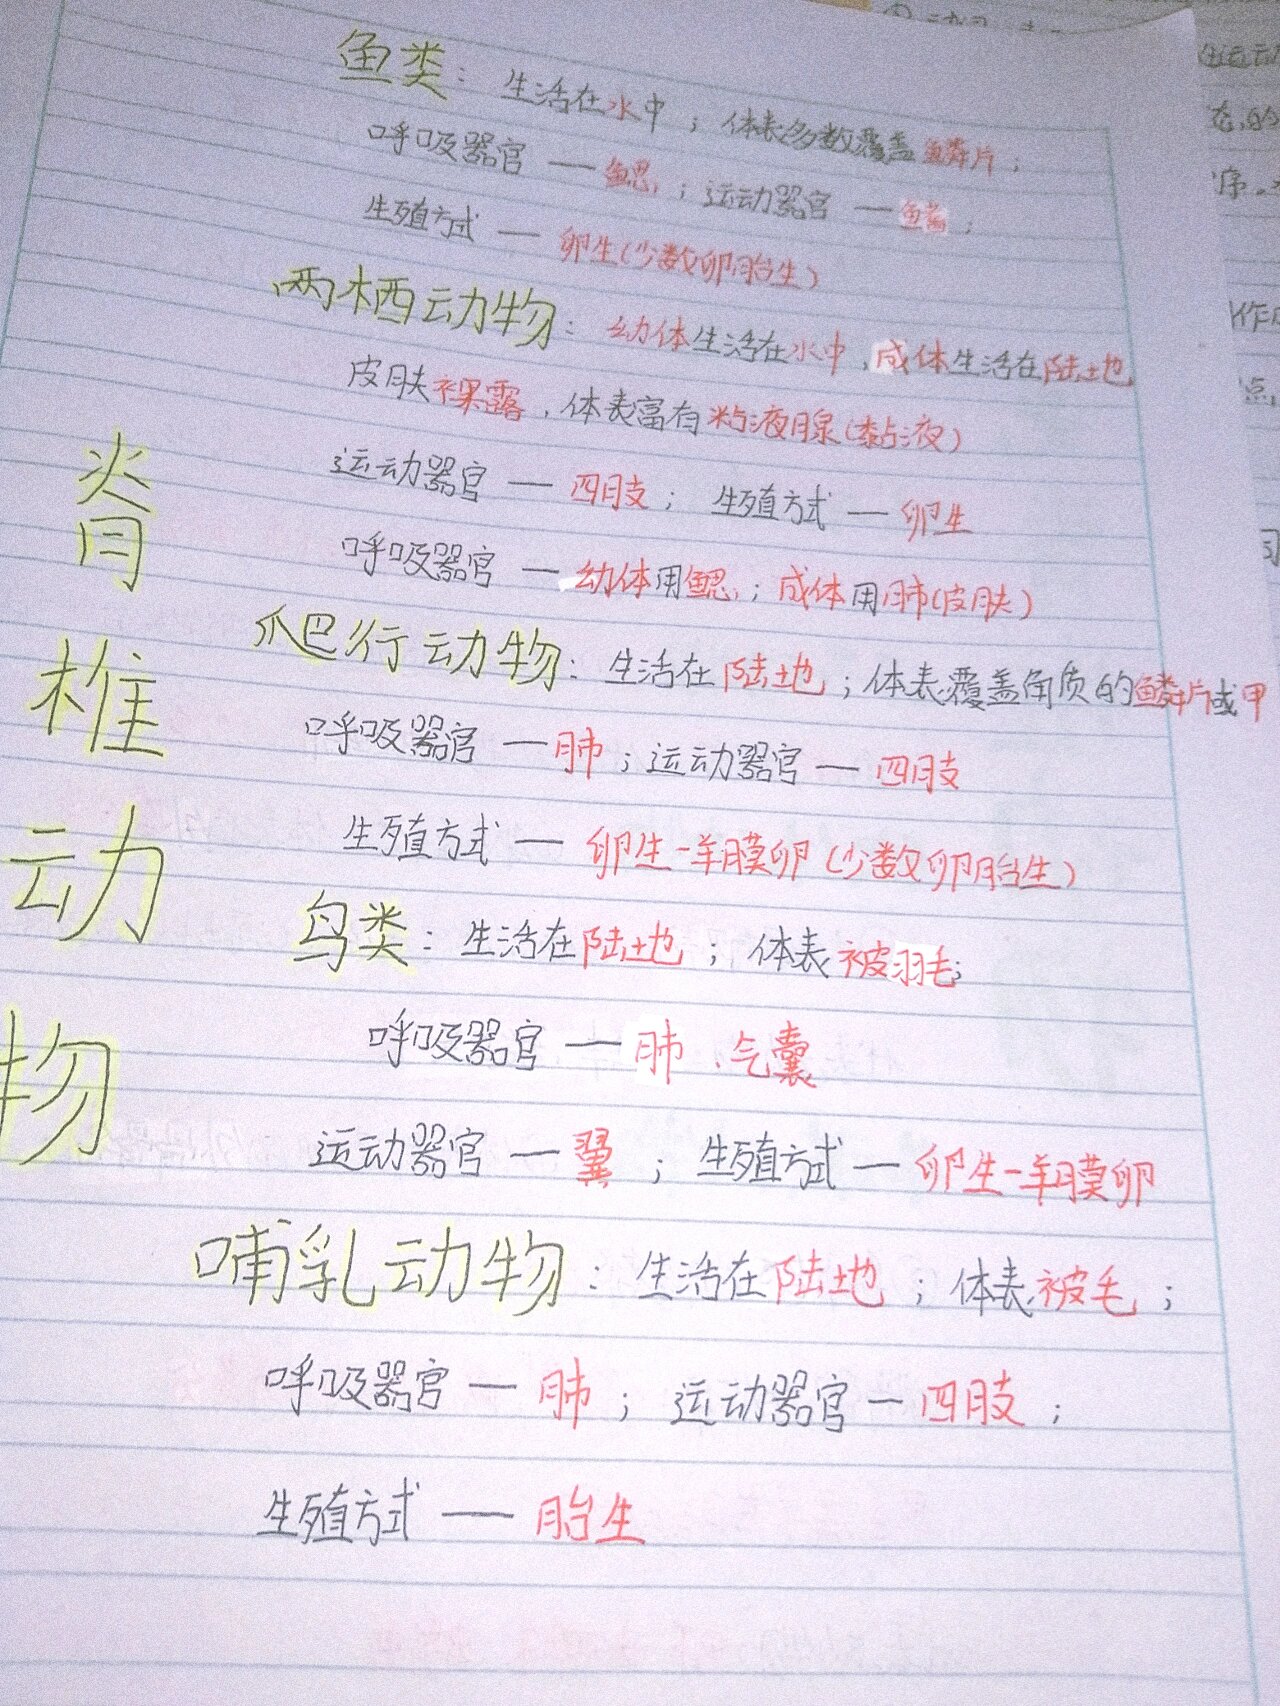 鱼类：生活在水中；体表多数覆盖鳞片；
呼吸器官——鳃；运动器官——鳍；
生殖方式——卵生(少数卵胎生)
两栖动物：幼体生活在水中，成体生活在陆地
皮肤裸露，体表富有粘液腺(黏液)
运动器官——四肢；生殖方式——卵生
呼吸器官——幼体用鳃；成体用肺(皮肤)
爬行动物：生活在陆地；体表覆盖角质的鳞片或甲
呼吸器官——肺；运动器官——四肢
生殖方式——卵生-羊膜卵(少数卵胎生)
鸟类：生活在陆地；体表被羽毛；
呼吸器官——肺、气囊
运动器官——翼；生殖方式——卵生-羊膜卵
哺乳动物：生活在陆地；体表被毛；
呼吸器官——肺；运动器官——四肢；
生殖方式——胎生
脊
椎
动
物